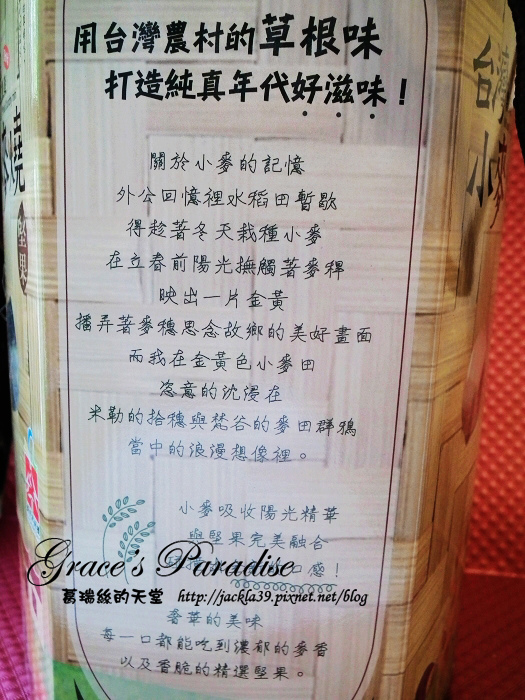 用台灣農村的草根味
打造純真年代好滋味！
關於小麥的記憶
外公回憶裡水稻田暫歇
得趁著冬天栽種小麥
在立春前陽光撫觸著麥稈
映出一片金黃
播弄著麥穗思念故鄉的美好畫面
而我在金黃色小麥田
恣意的沈浸在
米勒的拾穗與梵谷的麥田群鴉
當中的浪漫想像裡。
小麥吸收陽光精華
與堅果完美融合
口感！
Grace's Paradise
葛瑞絲的天堂 http://jackla39.pixnet.net/blog
奢華的美味
每一口都能吃到濃郁的麥香
以及香脆的精選堅果。
燒
堅果
台灣
小麥